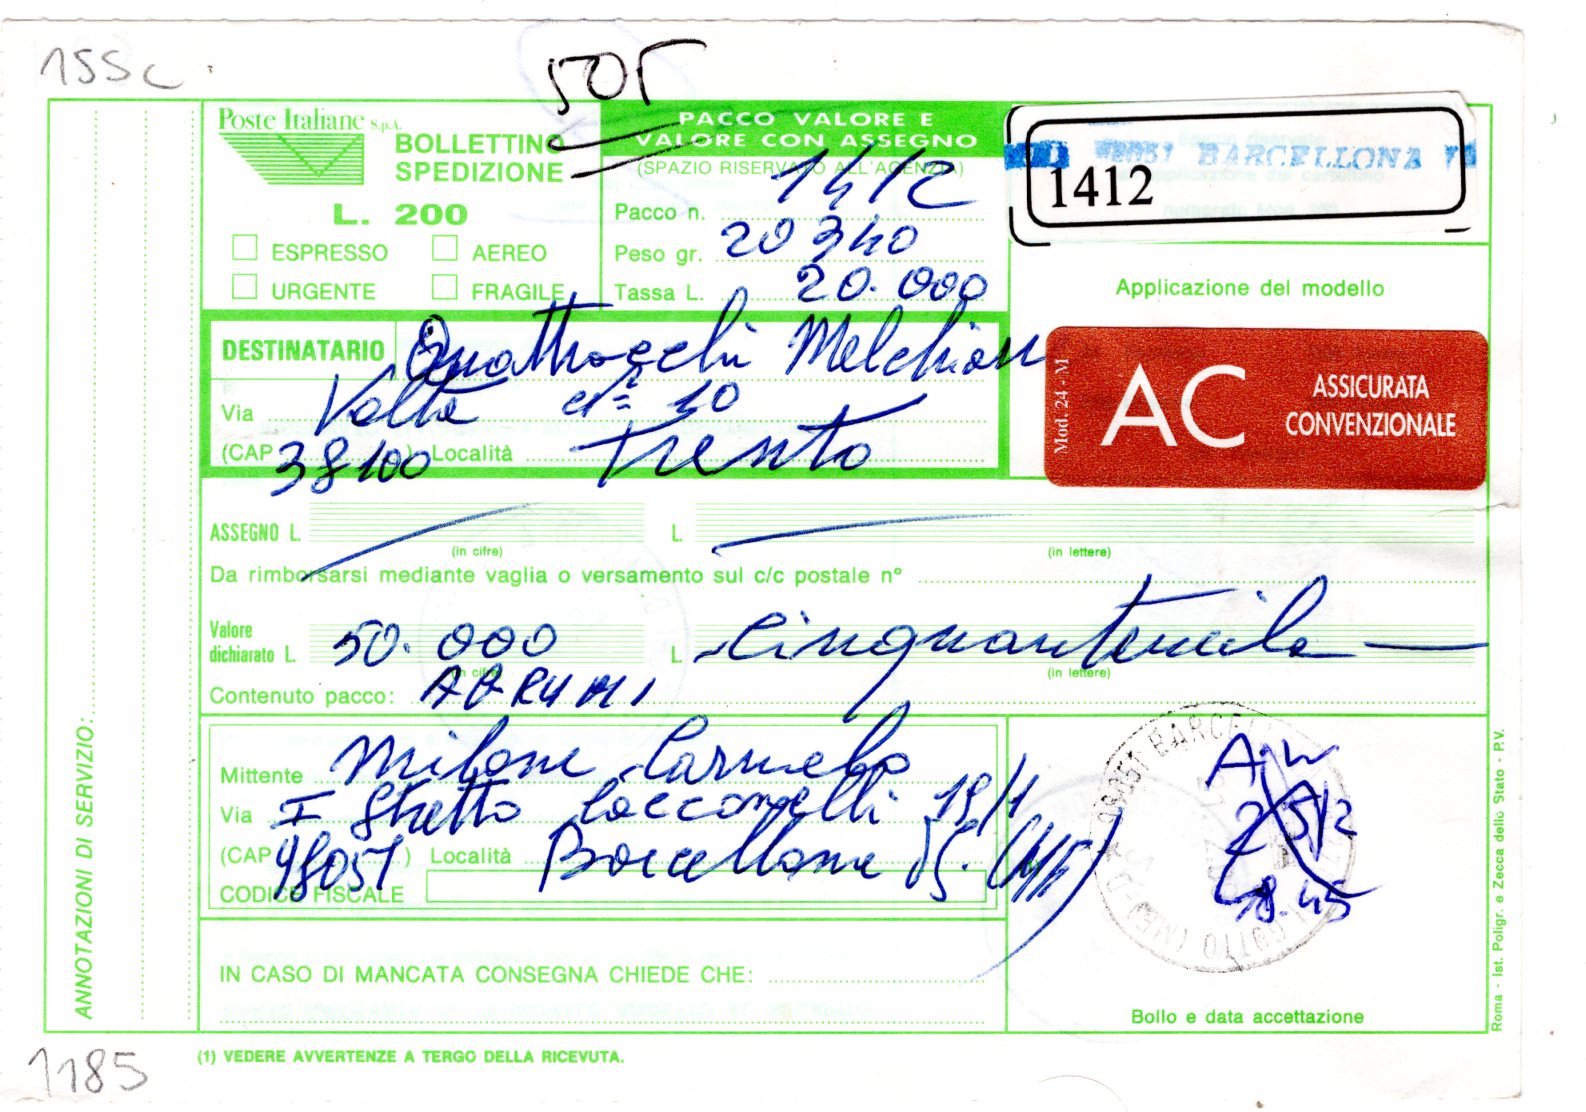 155c.
50T
Poste Italiane S.p.A.
BOLLETTINO
SPEDIZIONE
L. 200
ESPRESSO AEREO
URGENTE FRAGILE
PACCO VALORE E
VALORE CON ASSEGNO
(SPAZIO RISERVATO ALL'AGENZIA)
Pacco n. 1412
Peso gr. 20340
Tassa L. 20.000
98051 BARCELLONA
1412
Applicazione del modello
Mod. 24 - M
AC ASSICURATA
CONVENZIONALE
DESTINATARIO Quattrocchi Melchiorr
Via Volta n° 10
(CAP 38100) Località Trento
ASSEGNO L. (in cifre) L. (in lettere)
Da rimborsarsi mediante vaglia o versamento sul c/c postale n°
Valore
dichiarato L. 50.000 (in cifre) L. Cinquantamila (in lettere)
Contenuto pacco: AGRUMI
Mittente Milone Carmelo
Via I Stretto Cocconelli 19/1
(CAP 98051) Località Barcellona P.G. (ME)
CODICE FISCALE
IN CASO DI MANCATA CONSEGNA CHIEDE CHE:
98051 BARCELLONA
GOTTO (ME)
25/2
18.45
Bollo e data accettazione
ANNOTAZIONI DI SERVIZIO:
Roma - Ist. Poligr. e Zecca dello Stato - P.V.
(1) VEDERE AVVERTENZE A TERGO DELLA RICEVUTA.
1185